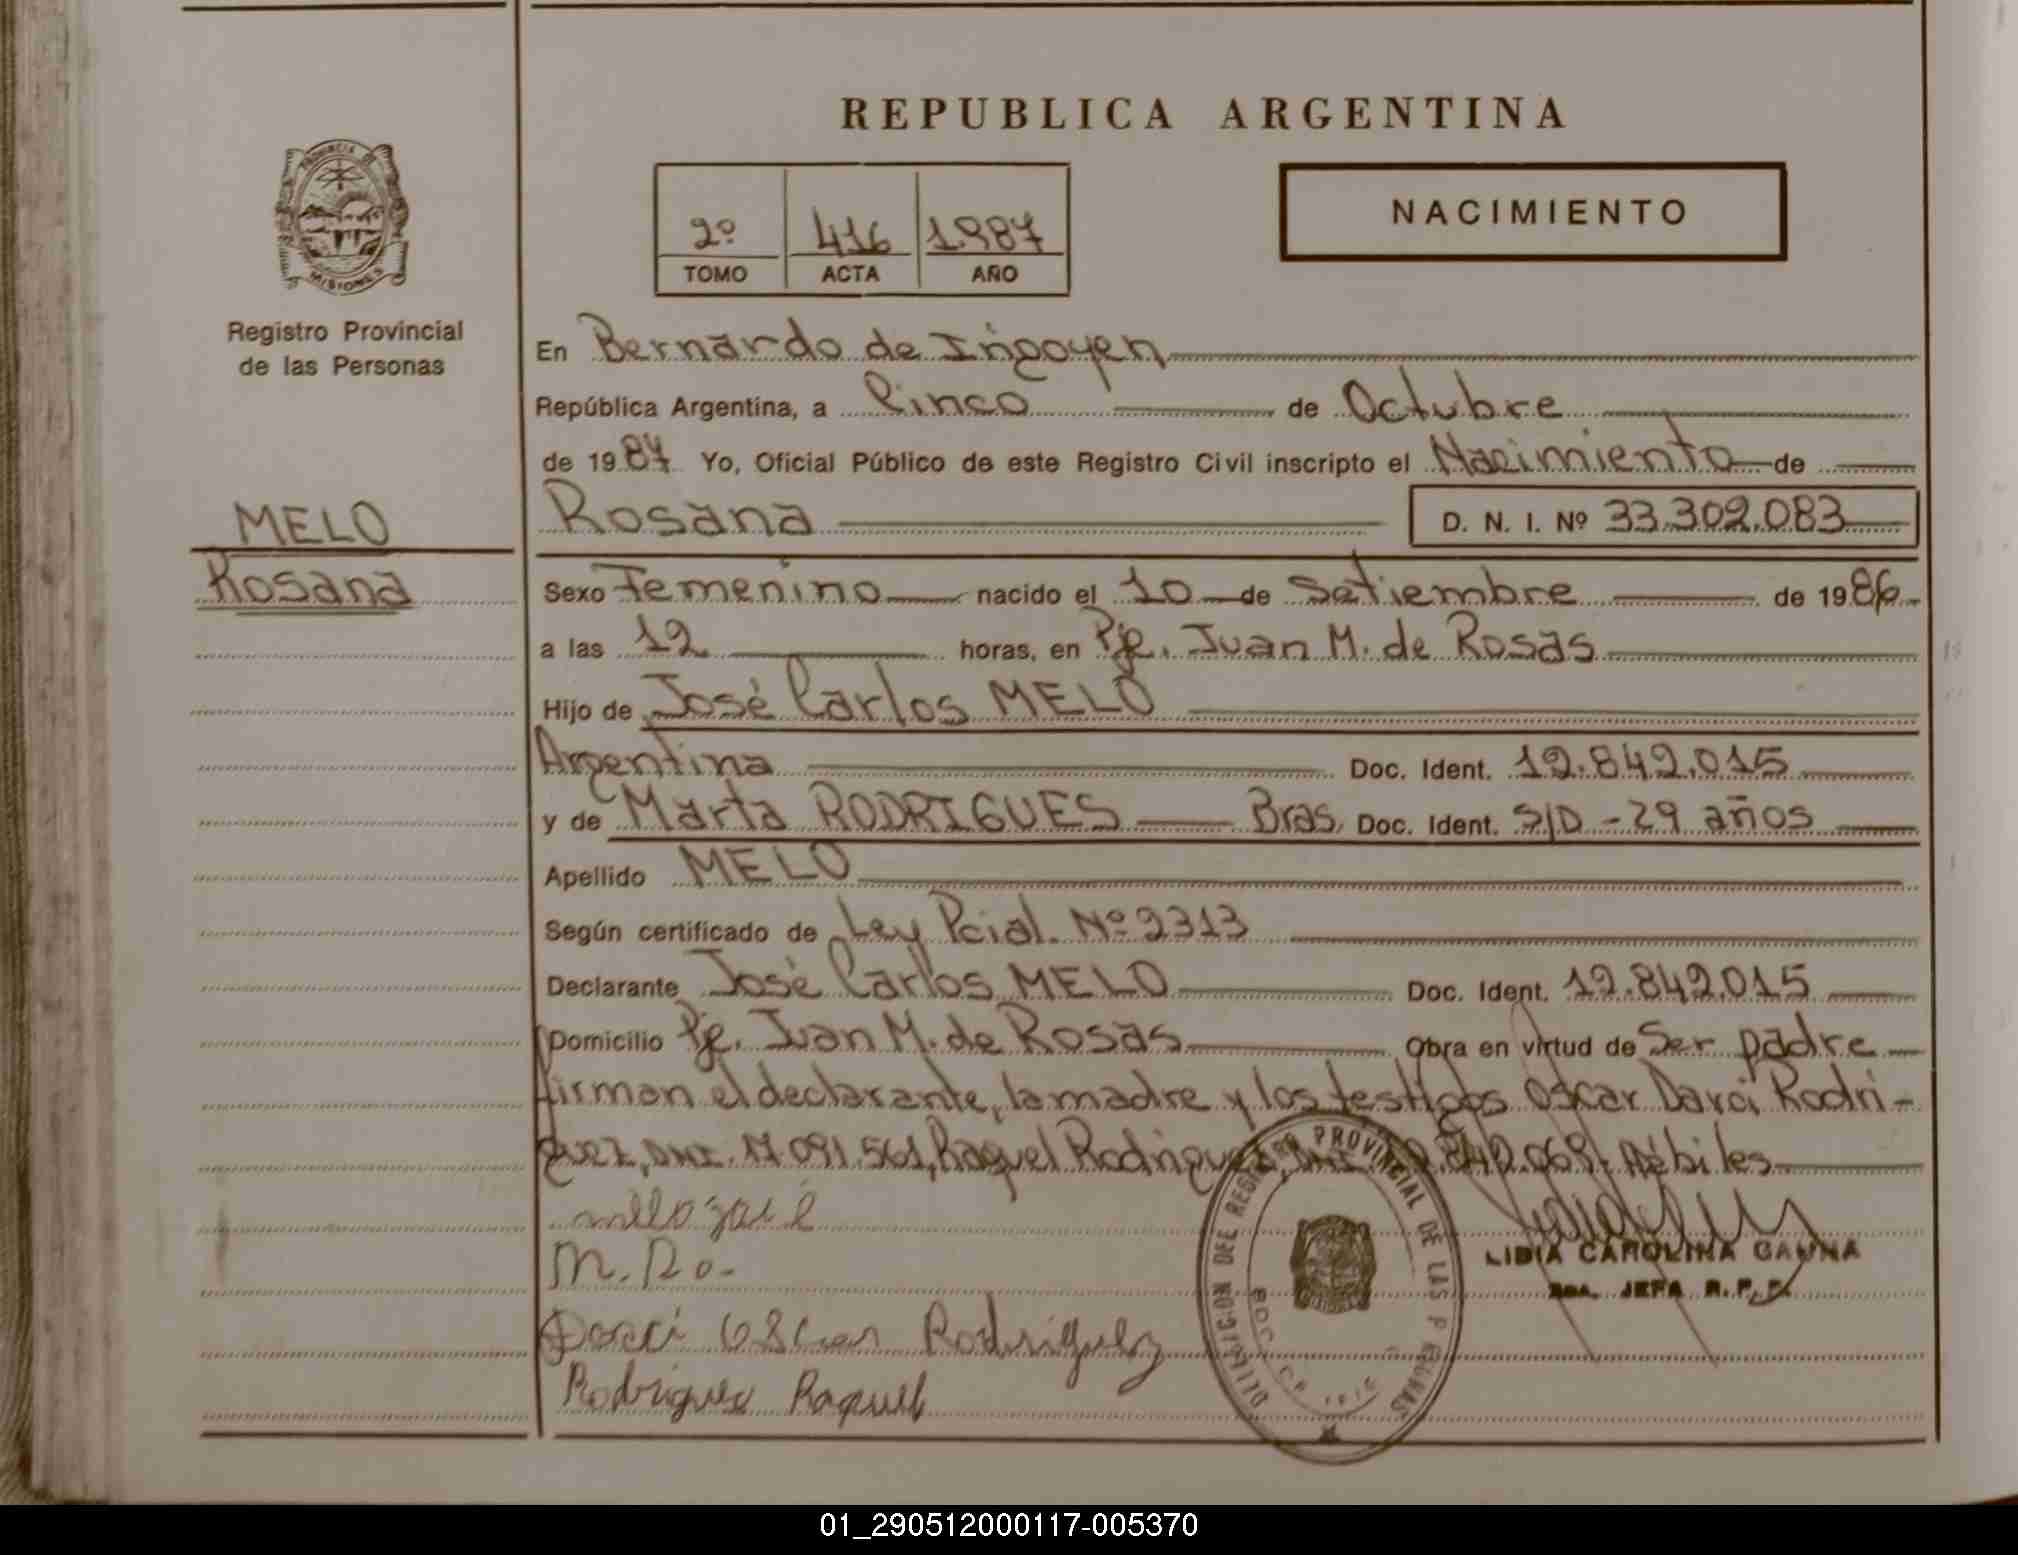 REPUBLICA ARGENTINA
PROVINCIA DE MISIONES
Registro Provincial
de las Personas
2º 416 1987
TOMO ACTA AÑO
NACIMIENTO
En Bernardo de Irigoyen
República Argentina, a Cinco de Octubre
de 1987 Yo, Oficial Público de este Registro Civil inscripto el Nacimiento de
MELO
Rosana
Rosana D. N. I. Nº 33.302.083
Sexo Femenino nacido el 10 de Setiembre de 1986
a las 12 horas, en Pje. Juan M. de Rosas
Hijo de José Carlos MELO
Argentina Doc. Ident. 12.842.015
y de Marta RODRIGUES Bras. Doc. Ident. S/D - 29 años
Apellido MELO
Según certificado de Ley Pcial. Nº 2313
Declarante José Carlos MELO Doc. Ident. 12.842.015
Domicilio Pje. Juan M. de Rosas Obra en virtud de Ser padre
firman el declarante, la madre y los testigos Oscar Darci Rodri-
guez, DNI. 17.091.561, Raquel Rodriguez, DNI. Hábiles
M. Ro.
Darci Oscar Rodriguez
Rodriguez Raquel
REGISTRO PROVINCIAL DE LAS
LIDIA CAROLINA GAUNA
JEFA R. P. P.
01_290512000117-005370